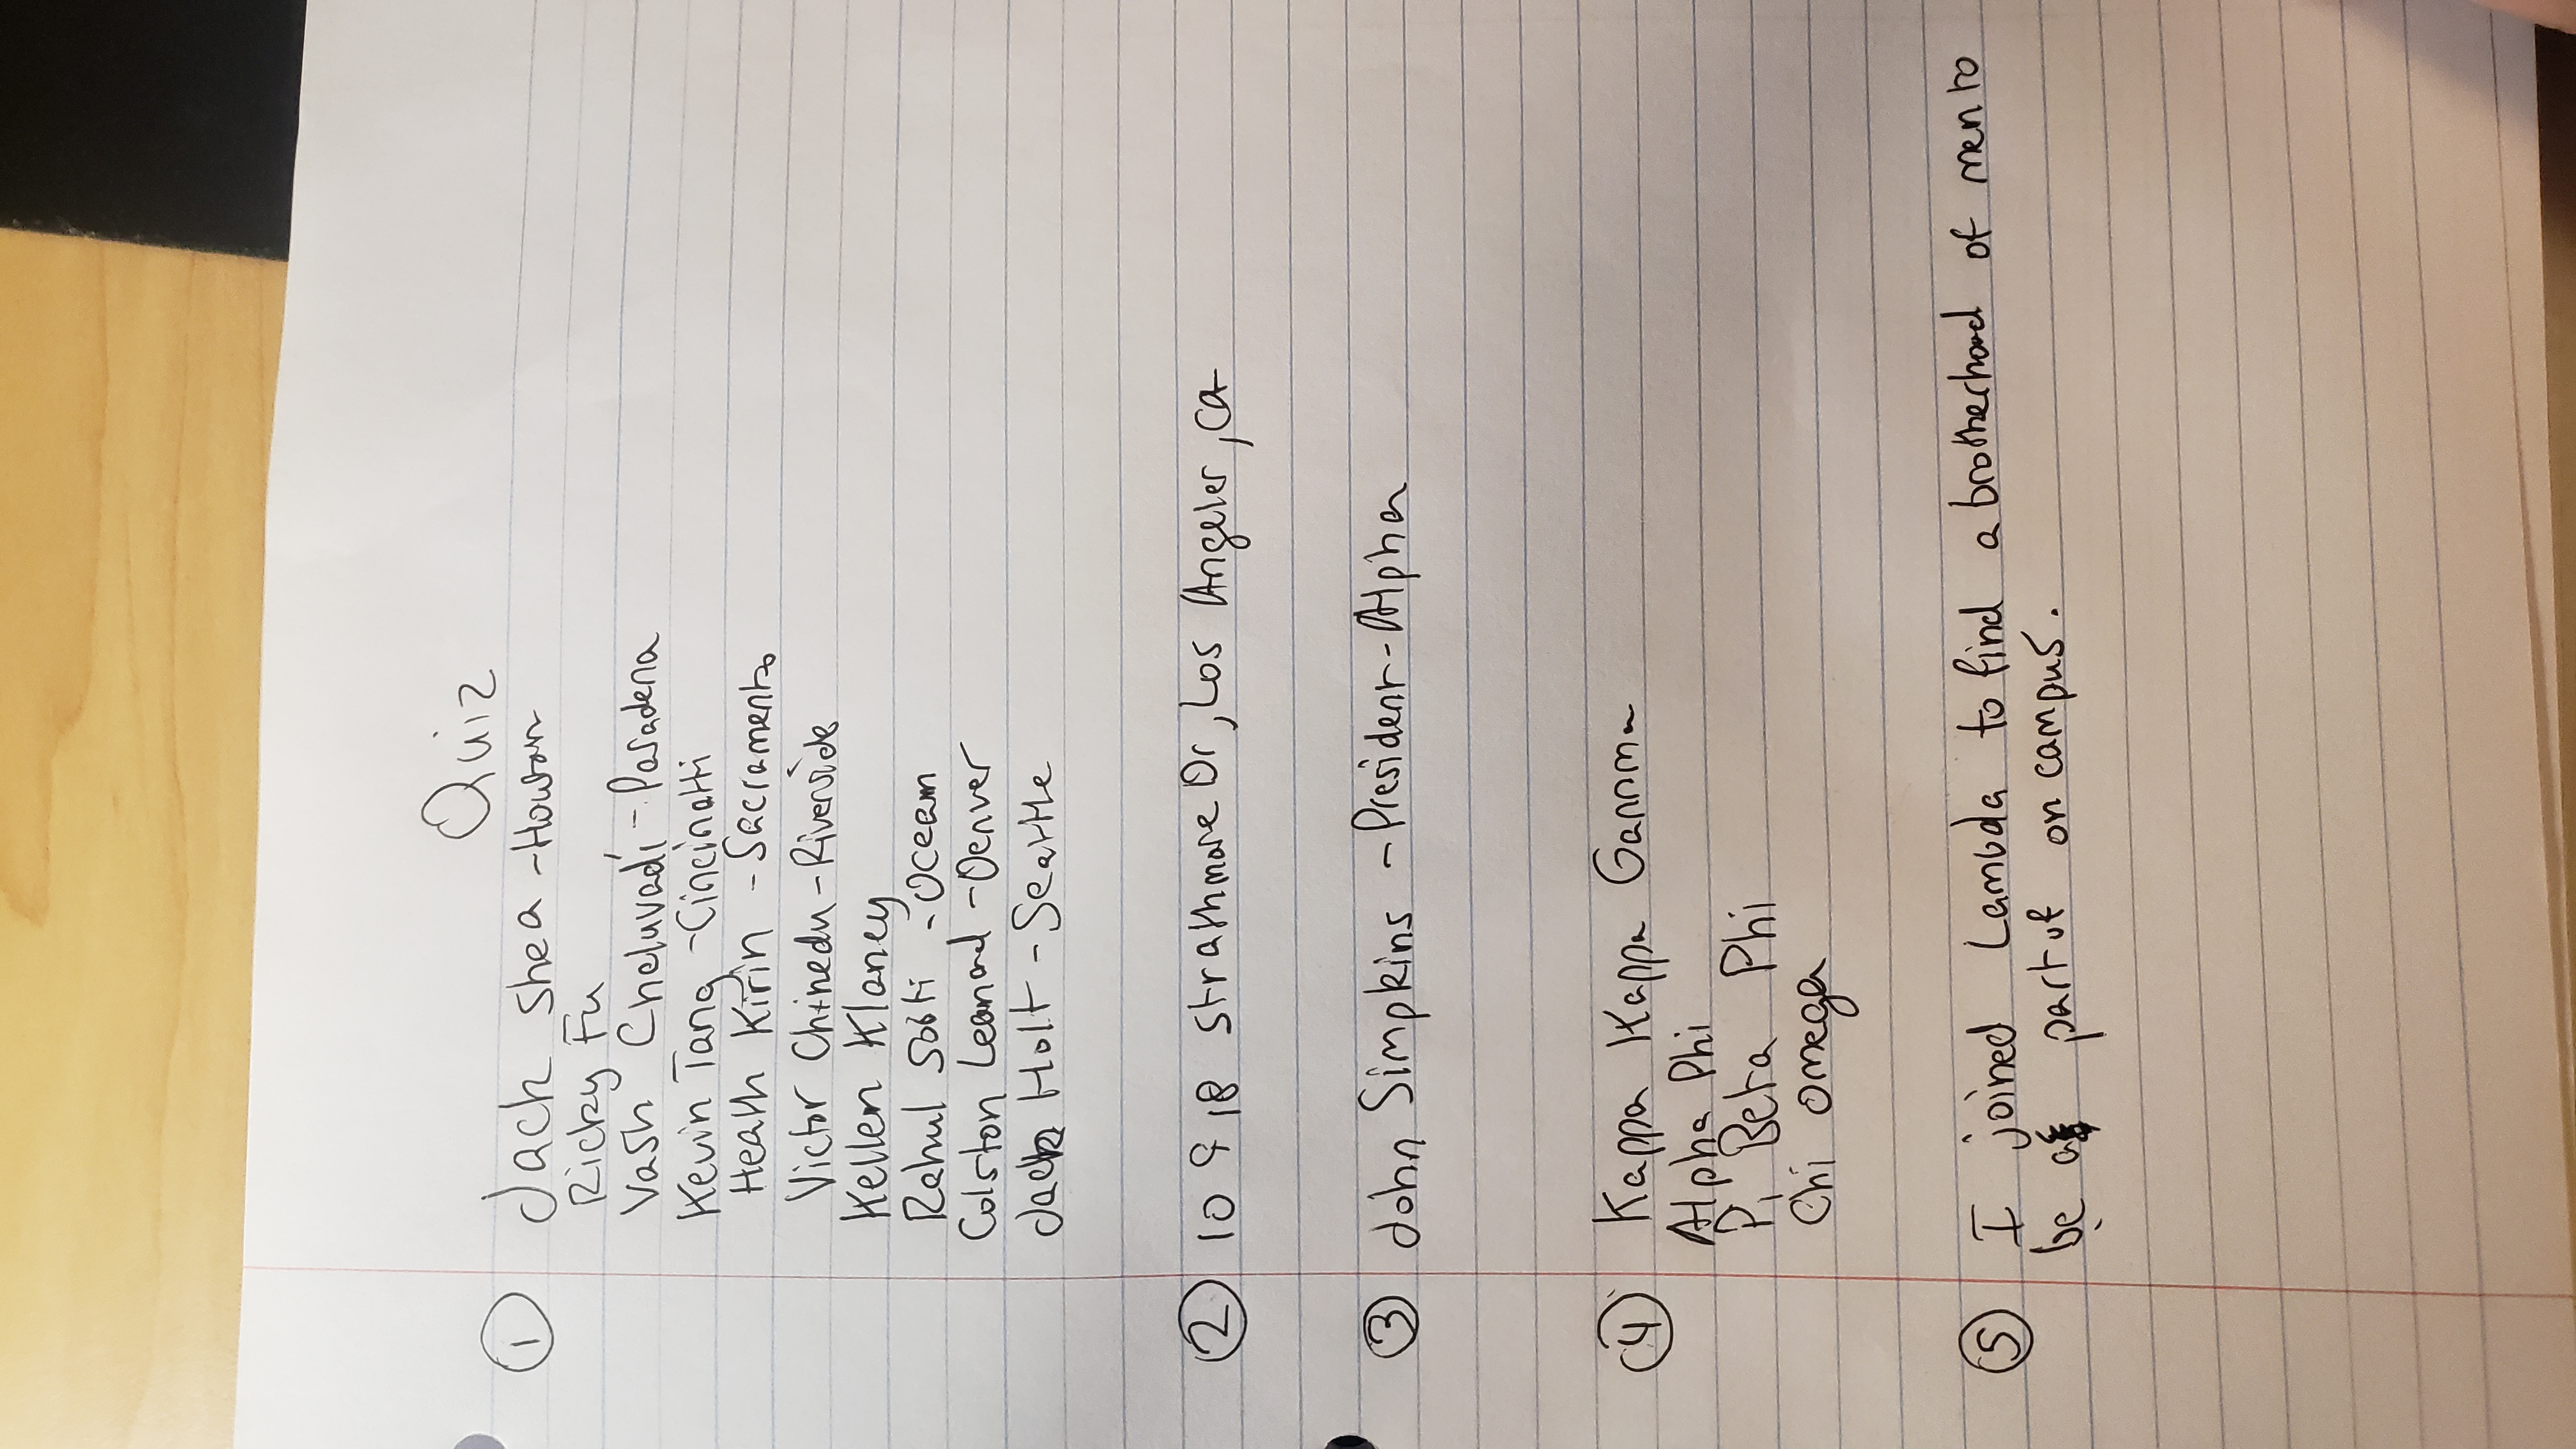 Quiz
① Jack Shea - Houston
Ricky Fu
Vash Cheluvadi - Pasadena
Kevin Tang - Cincinatti
Heath Kirin - Sacramento
Victor Chinedu - Riverside
Kellen Klaney
Rahul Sobti - Ocean
Colston Leonard - Denver
Jack Holt - Seattle
② 10918 Strathmore Dr, Los Angeles, CA
③ John Simpkins - President - Alpha
④ Kappa Kappa Gamma
Alpha Phi
Pi Beta Phi
Chi Omega
⑤ I joined Lambda to find a brotherhood of men to
be a part of on campus.